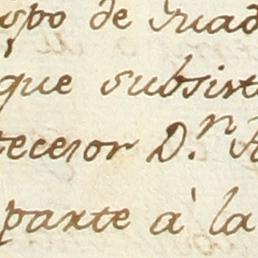 spo de Guad
que subsist
tecesor D.ⁿ
parte à la